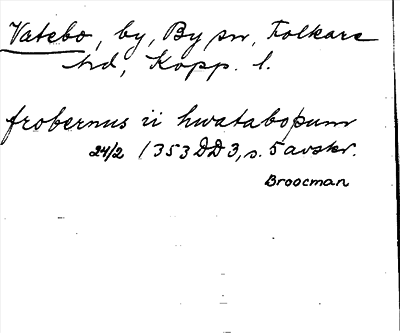 Vatebo, by, By sn, Folkare
hd, Kopp. l.
frobernus ii hwatabopum
24/2 1353 DD 3, s. 5 avskr.
Broocman